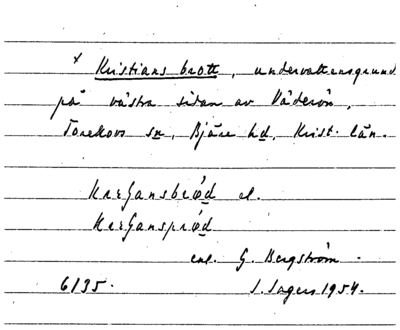 x Kristians brott, undervattensgrund
på västra sidan av Väderön,
Torekovs sn, Bjäre hd, Krist. län.
el.
enl. G. Bergström.
6135. 1954.